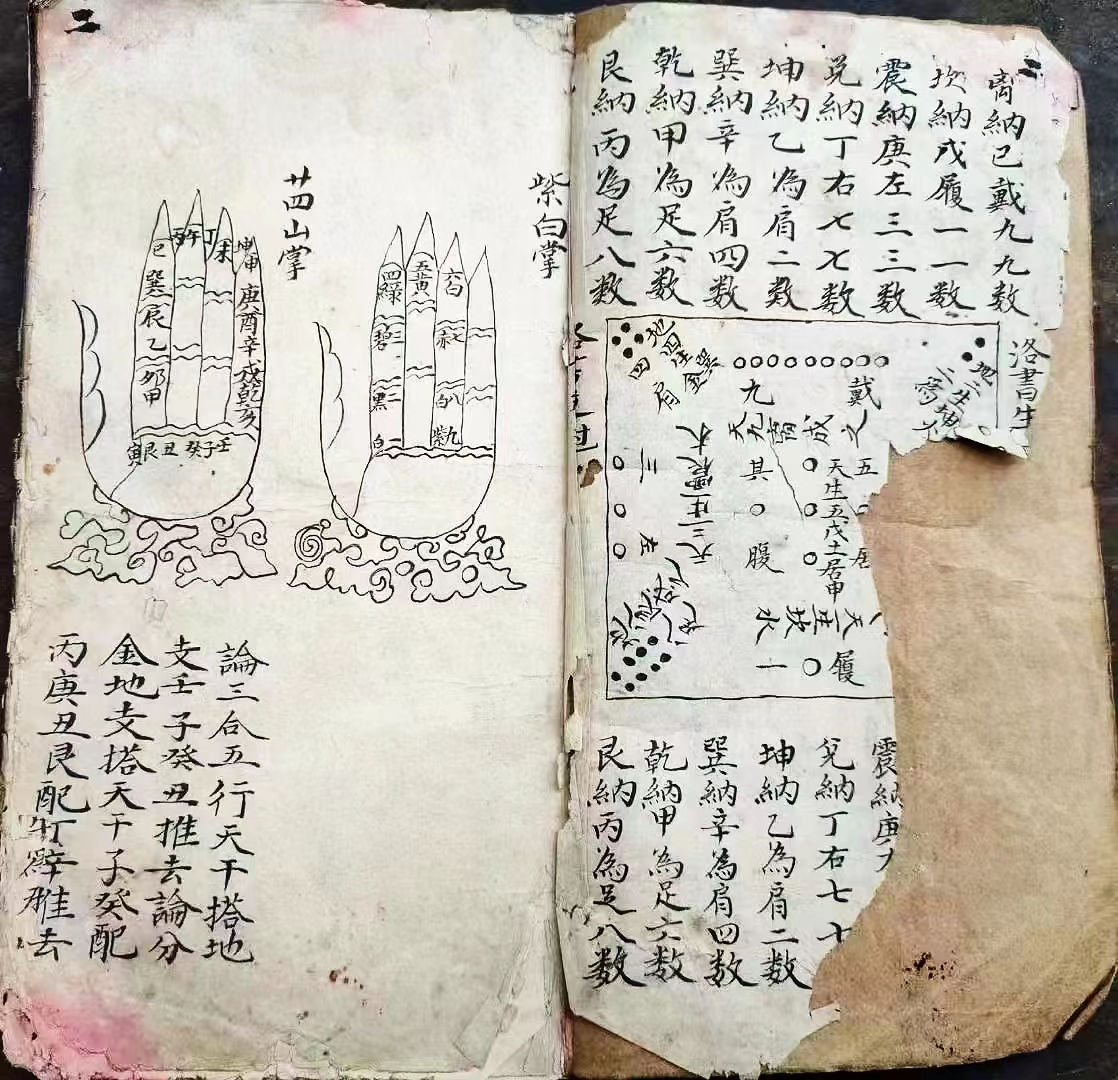 離納己戴九九数
坎納戊履一一数
震納庚左三三数
兌納丁右七七数
坤納乙為肩二数
巽納辛為肩四数
乾納甲為足六数
艮納丙為足八数
洛書生
戴九
之成
五居其腹
天生五戊土居中
履一
坎水
天三生震木
左三
四肩
震納庚左
兌納丁右七七
坤納乙為肩二数
巽納辛為肩四数
乾納甲為足六数
艮納丙為足八数
二
紫白掌
一白
二黑
三碧
四綠
五黄
六白
七赤
八白
九紫
廿四山掌
壬子癸丑艮寅
甲卯乙辰巽巳
丙午
丁未
坤申
庚酉辛戌乾亥
論三合五行天干搭地
支壬子癸丑推去論分
金地支搭天干子癸配
丙庚丑艮配丁辛推去